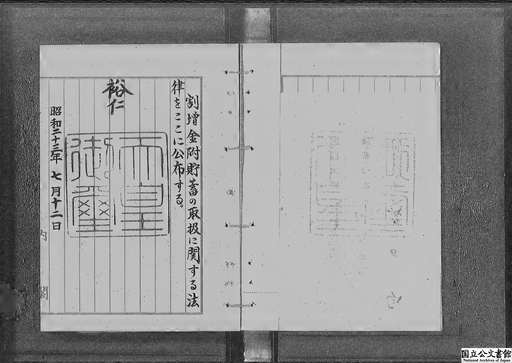 割増金附貯蓄の取扱に関する法
律をここに公布する。
裕仁
天皇
御璽
昭和二十三年 七月十二日
内閣
国立公文書館
National Archives of Japan